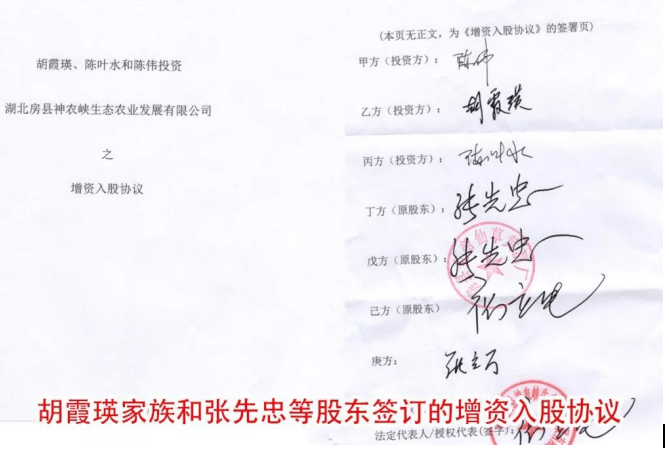 胡霞瑛、陈叶水和陈伟投资
湖北房县神农峡生态农业发展有限公司
之
增资入股协议
(本页无正文，为《增资入股协议》的签署页)
甲方（投资方）：陈伟
乙方（投资方）：胡霞瑛
丙方（投资方）：陈叶水
丁方（原股东）：张先忠
戊方（原股东）：张先忠
己方（原股东）
庚方：
法定代表人/授权代表(签字)：
胡霞瑛家族和张先忠等股东签订的增资入股协议